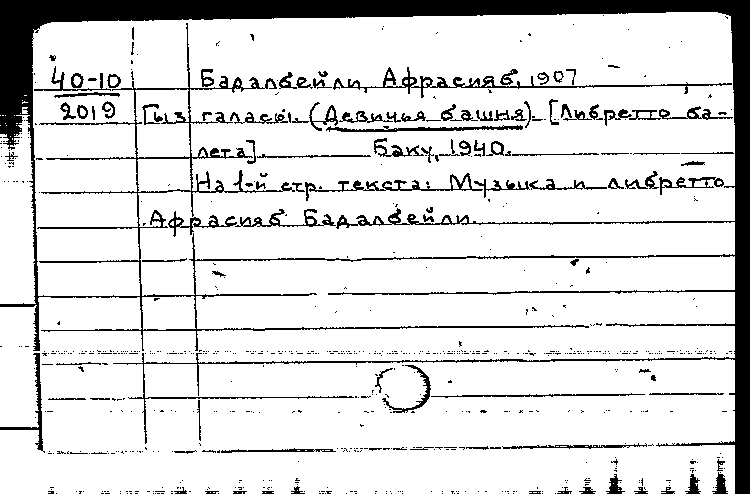 40-10
2019
Бадалбейли, Афрасияб, 1907
Гыз галасы. (Девичья башня). [Либретто ба-
лета]. Баку, 1940.
На 1-й стр. текста: Музыка и либретто
Афрасияб Бадалбейли.